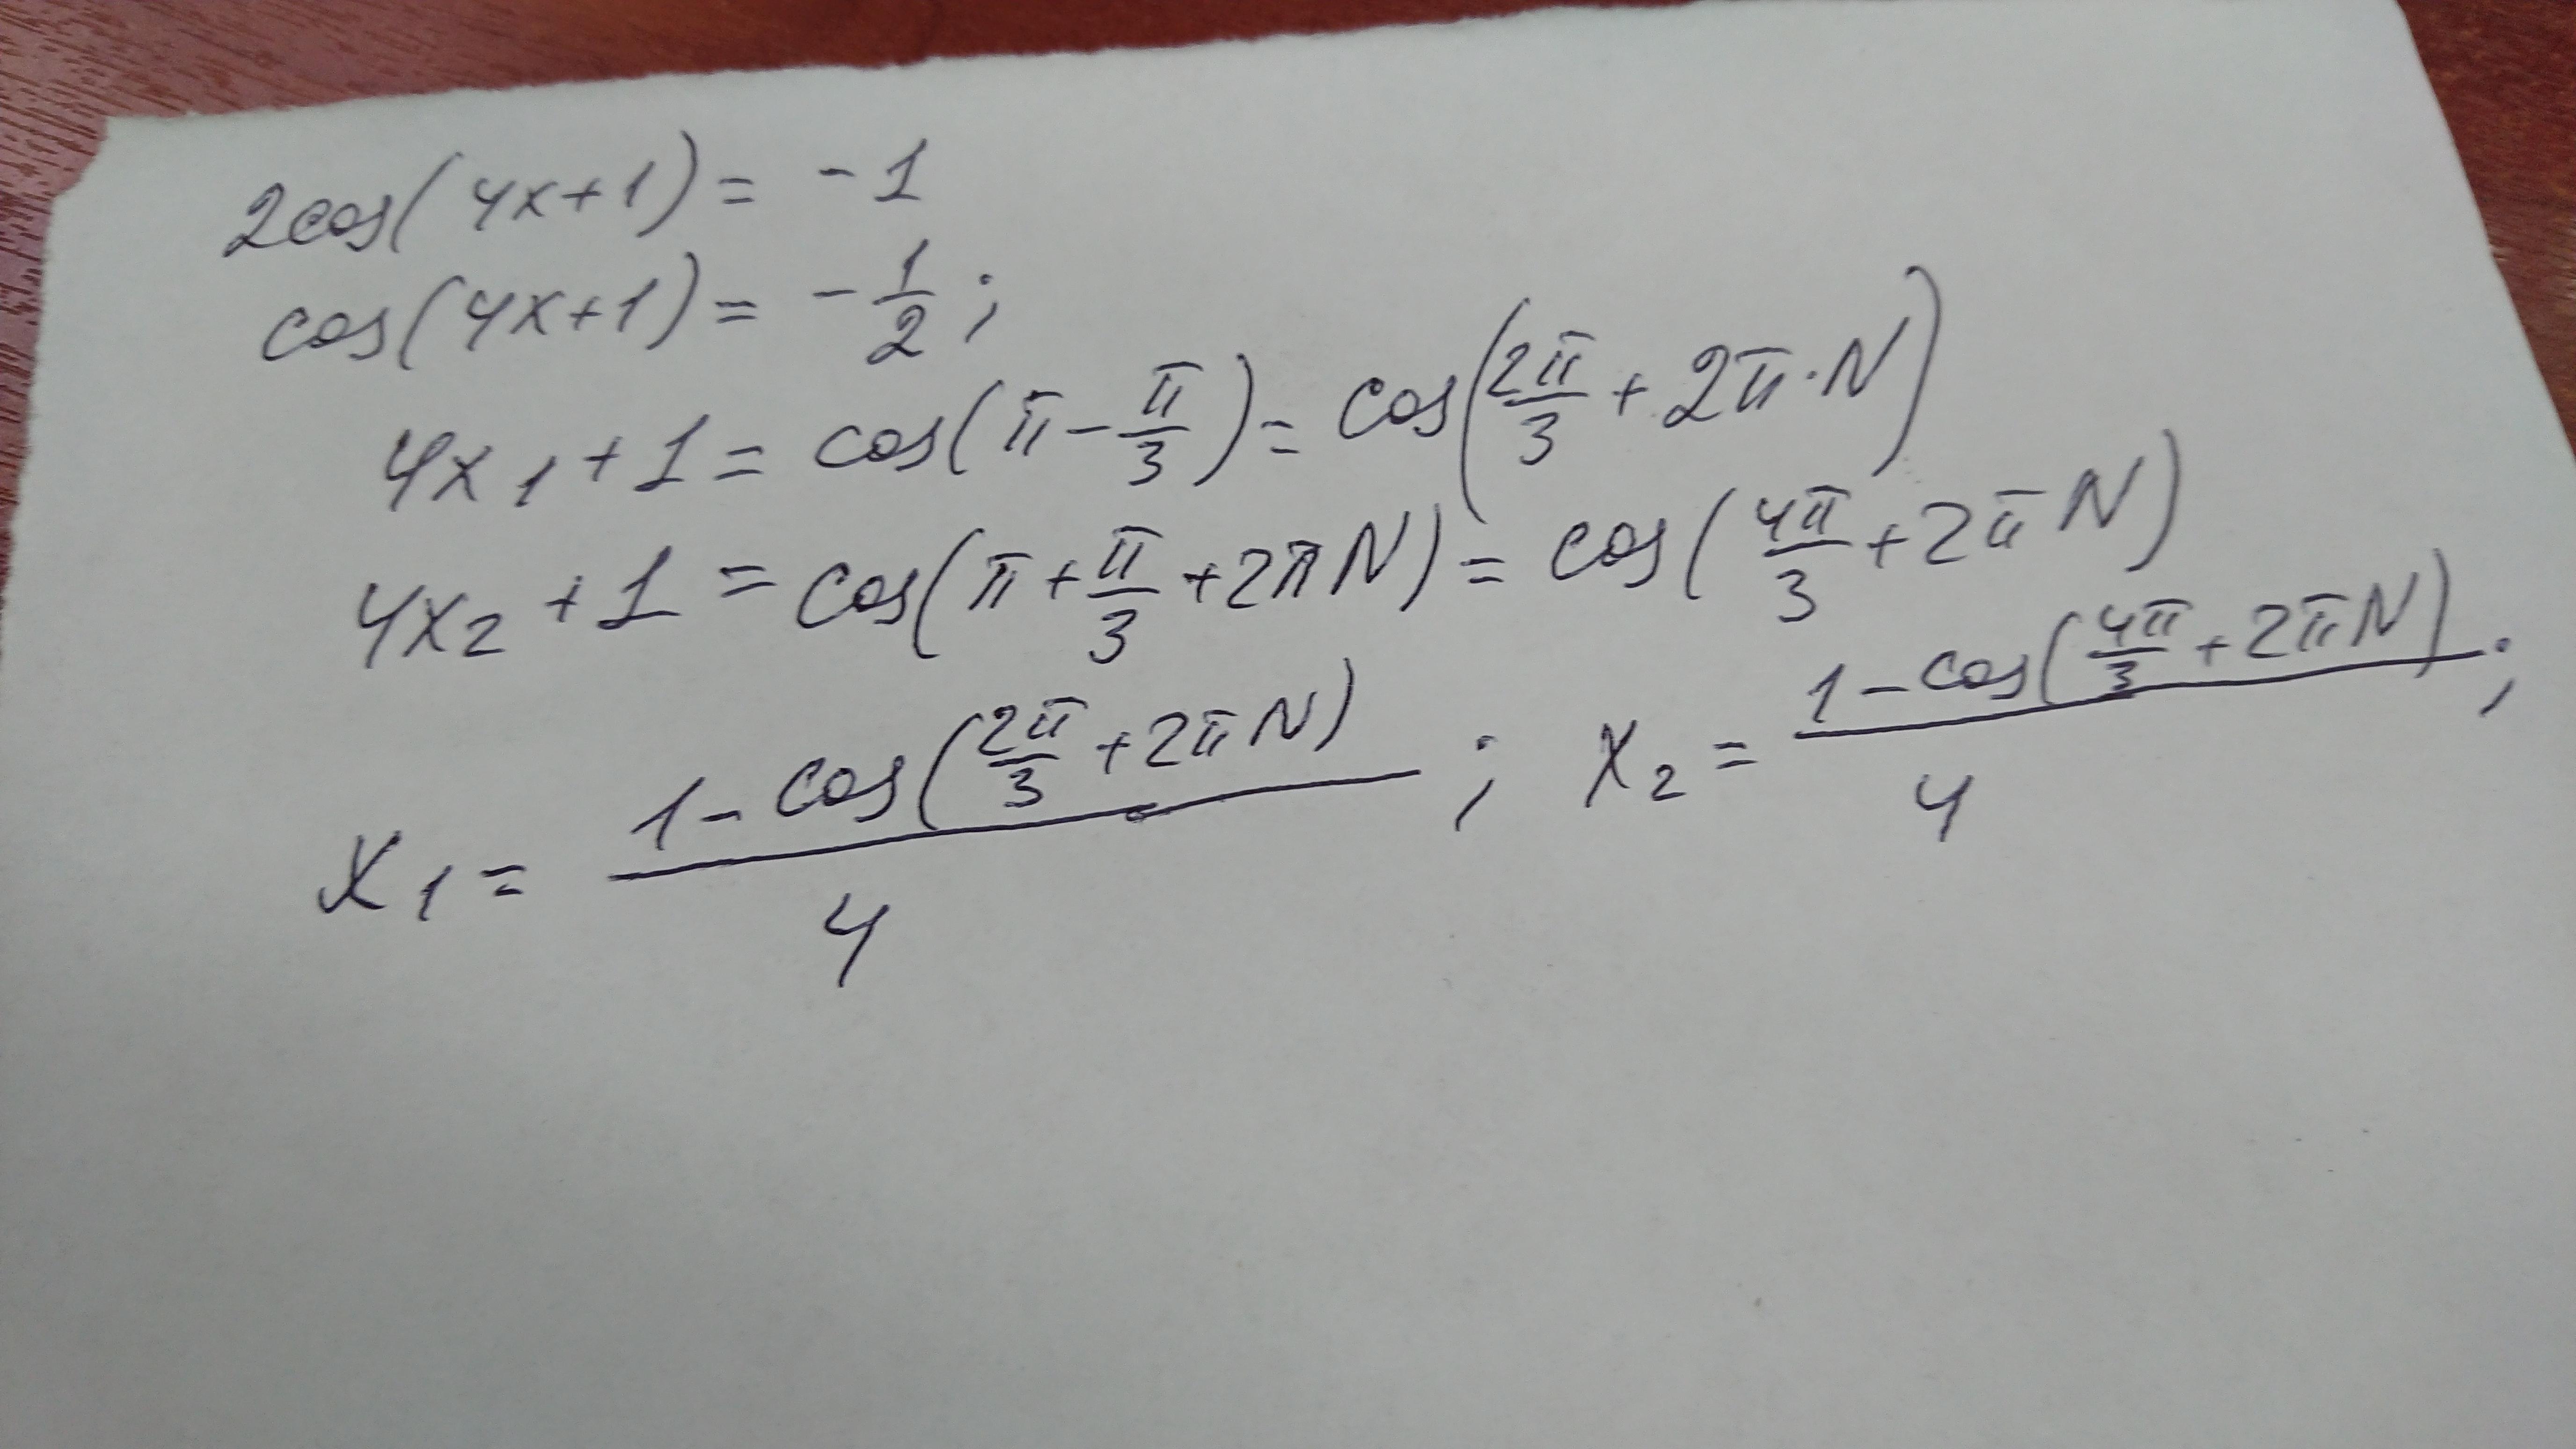 2cos(4x+1) = -1
cos(4x+1) = -1/2;
4x₁+1 = cos(π-π/3) = cos(2π/3+2π·N)
4x₂+1 = cos(π+π/3+2πN) = cos(4π/3+2πN)
x₁ = (1-cos(2π/3+2πN))/4; x₂ = (1-cos(4π/3+2πN))/4;